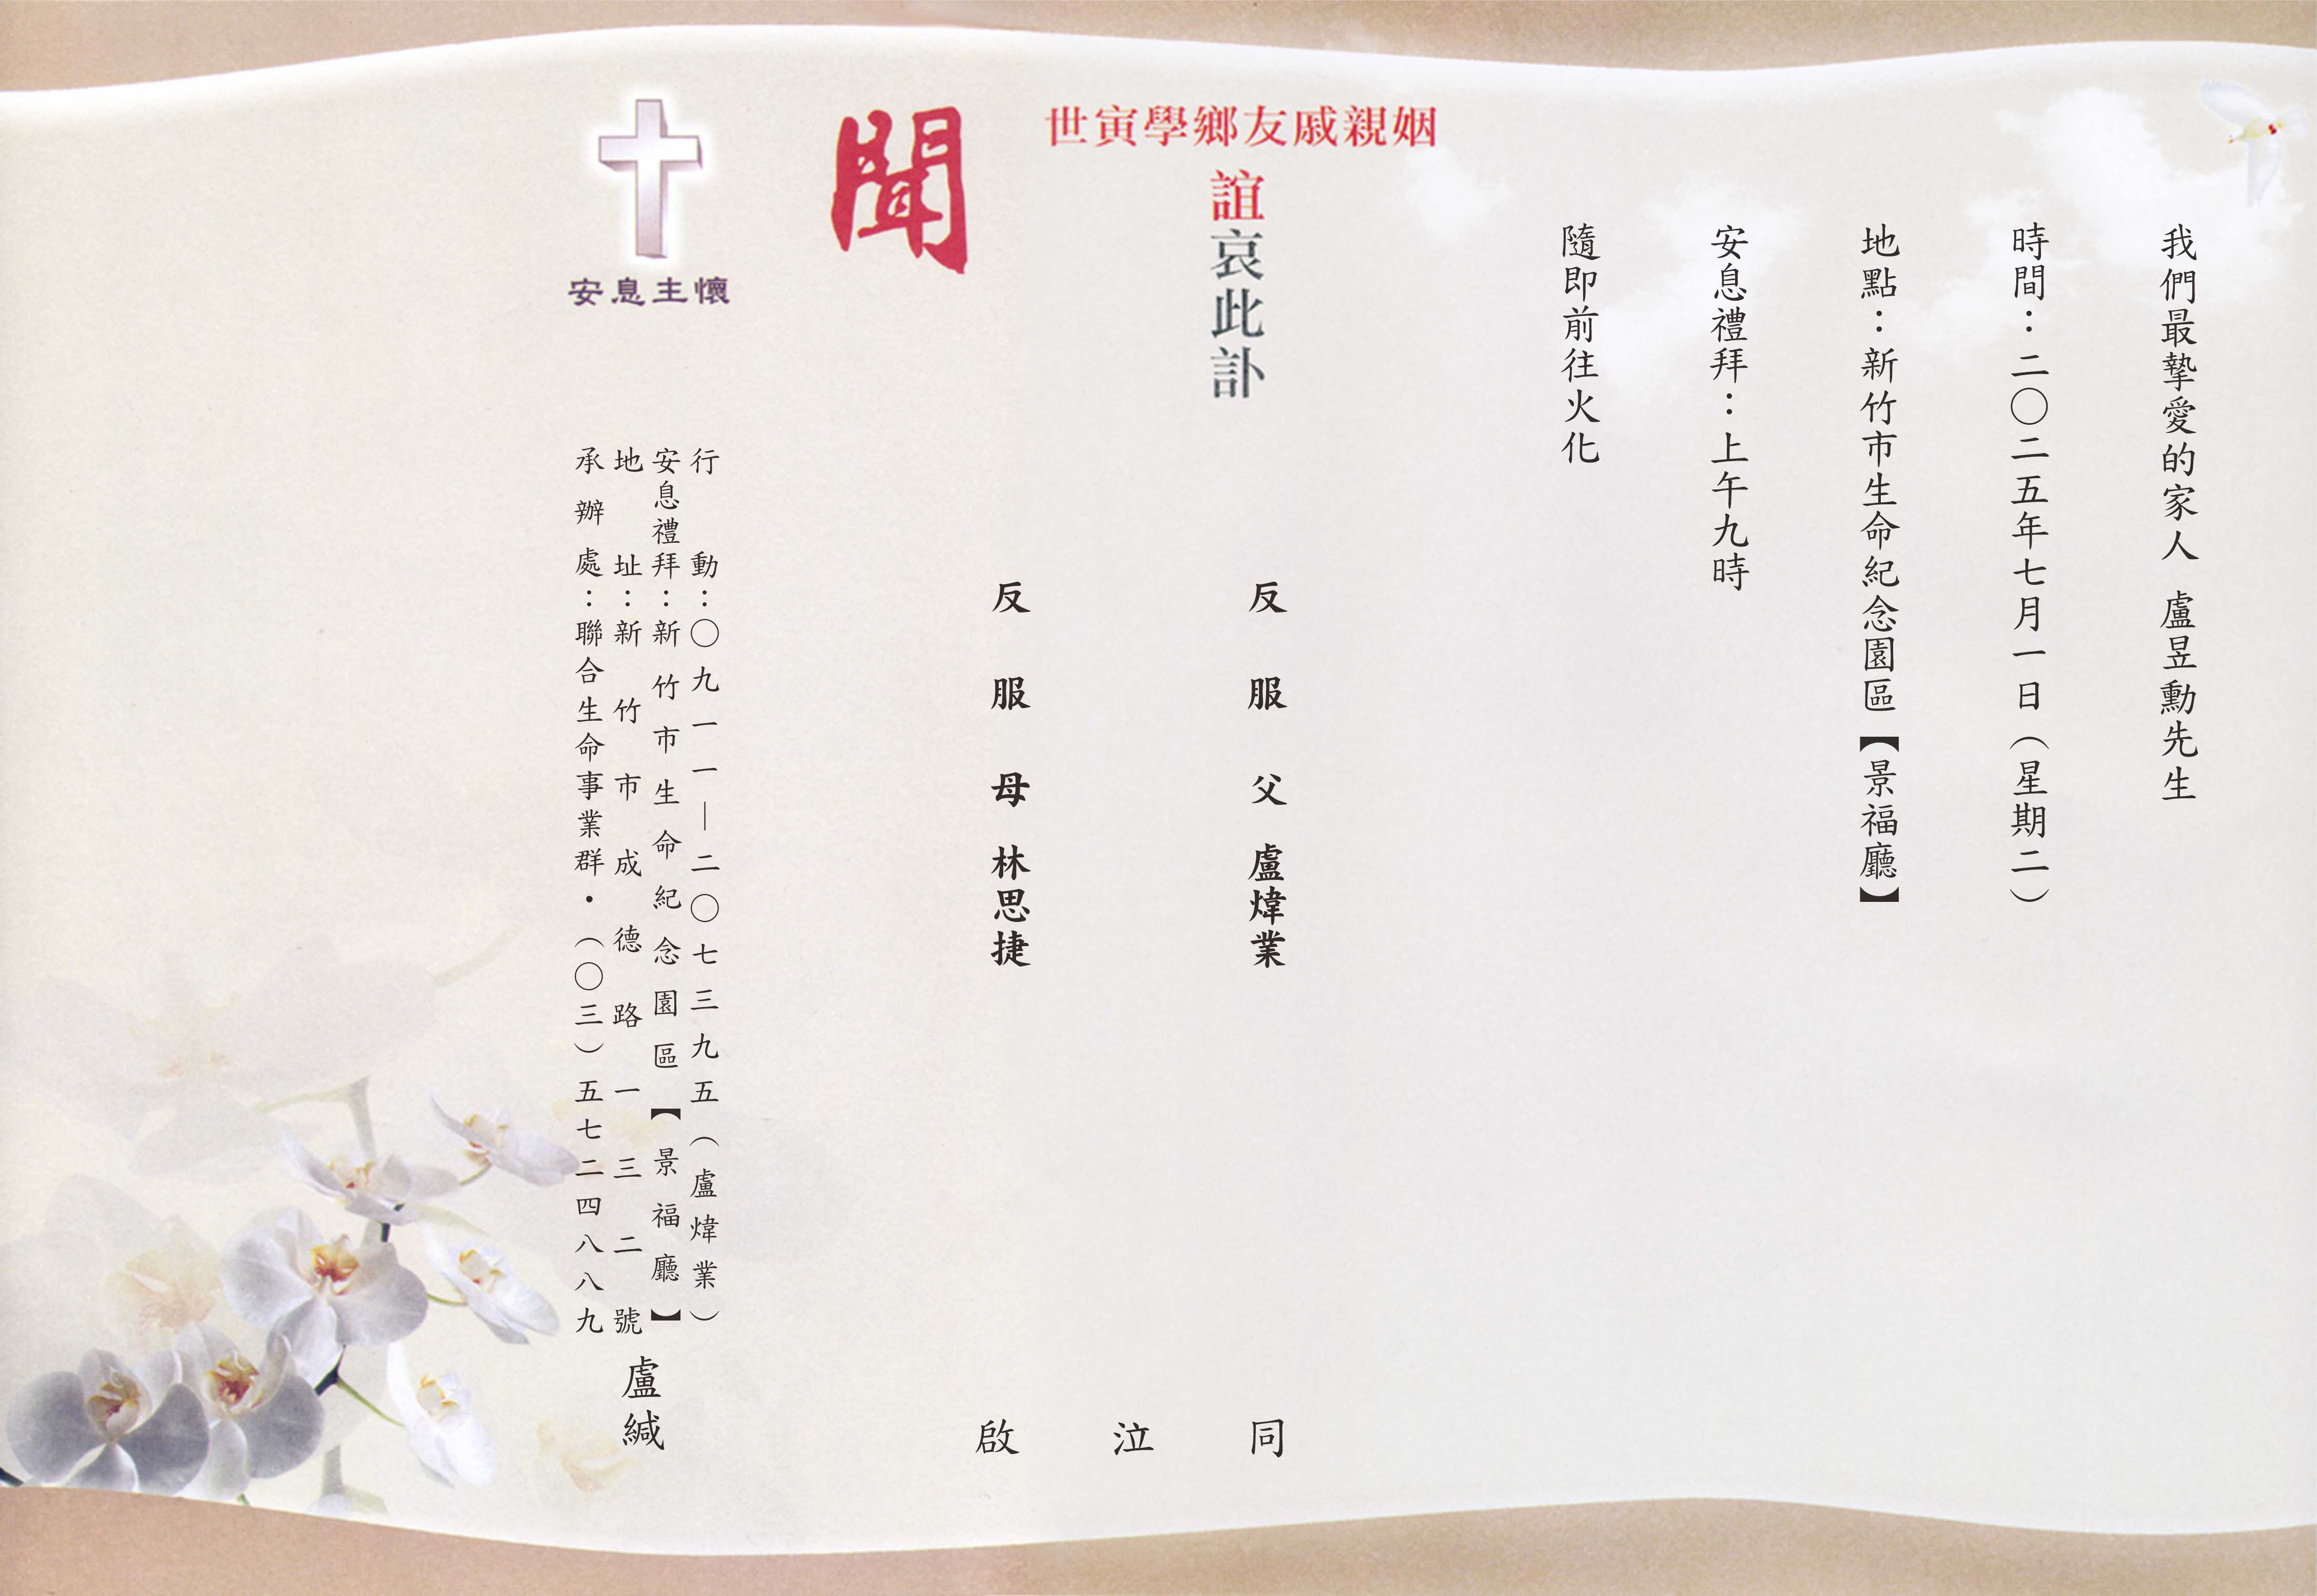 我們最摯愛的家人 盧昱勳先生
時間：二〇二五年七月一日（星期二）
地點：新竹市生命紀念園區【景福廳】
安息禮拜：上午九時
隨即前往火化
姻親戚友鄉學寅世
誼哀此訃
聞
反服父 盧煒業
反服母 林思捷
同泣啟
安息主懷
行動：〇九一一一—二〇七三九五（盧煒業）
安息禮拜：新竹市生命紀念園區【景福廳】
地址：新竹市成德路一三二號
承辦處：聯合生命事業群・（〇三）五七二四八八九
盧緘